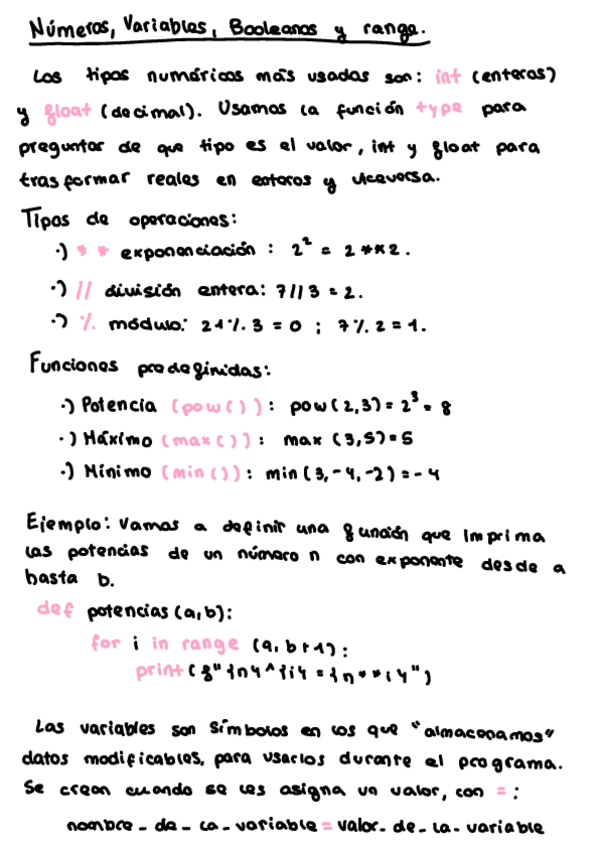 Números, Variables, Booleanos y range.
Los tipos numéricos más usados son: int (enteros)
y float (decimal). Usamos la función type para
preguntar de que tipo es el valor, int y float para
trasformar reales en enteros y viceversa.
Tipos de operaciones:
·) ** exponenciación : 2² = 2**2.
·) // división entera: 7//3 = 2.
·) % módulo: 21%3 = 0 ; 7%2 = 1.
Funciones predefinidas:
·) Potencia (pow()): pow(2,3) = 2³ = 8
·) Máximo (max()): max (3,5) = 5
·) Mínimo (min()): min(3,-4,-2) = -4
Ejemplo: Vamos a definir una función que imprima
las potencias de un número n con exponente desde a
hasta b.
def potencias(a,b):
for i in range (a, b+1):
print(f"{n}^{i} = {n**i}")
Las variables son símbolos en los que "almacenamos"
datos modificables, para usarlos durante el programa.
Se crean cuando se les asigna un valor, con = :
nombre_de_la_variable = valor_de_la_variable